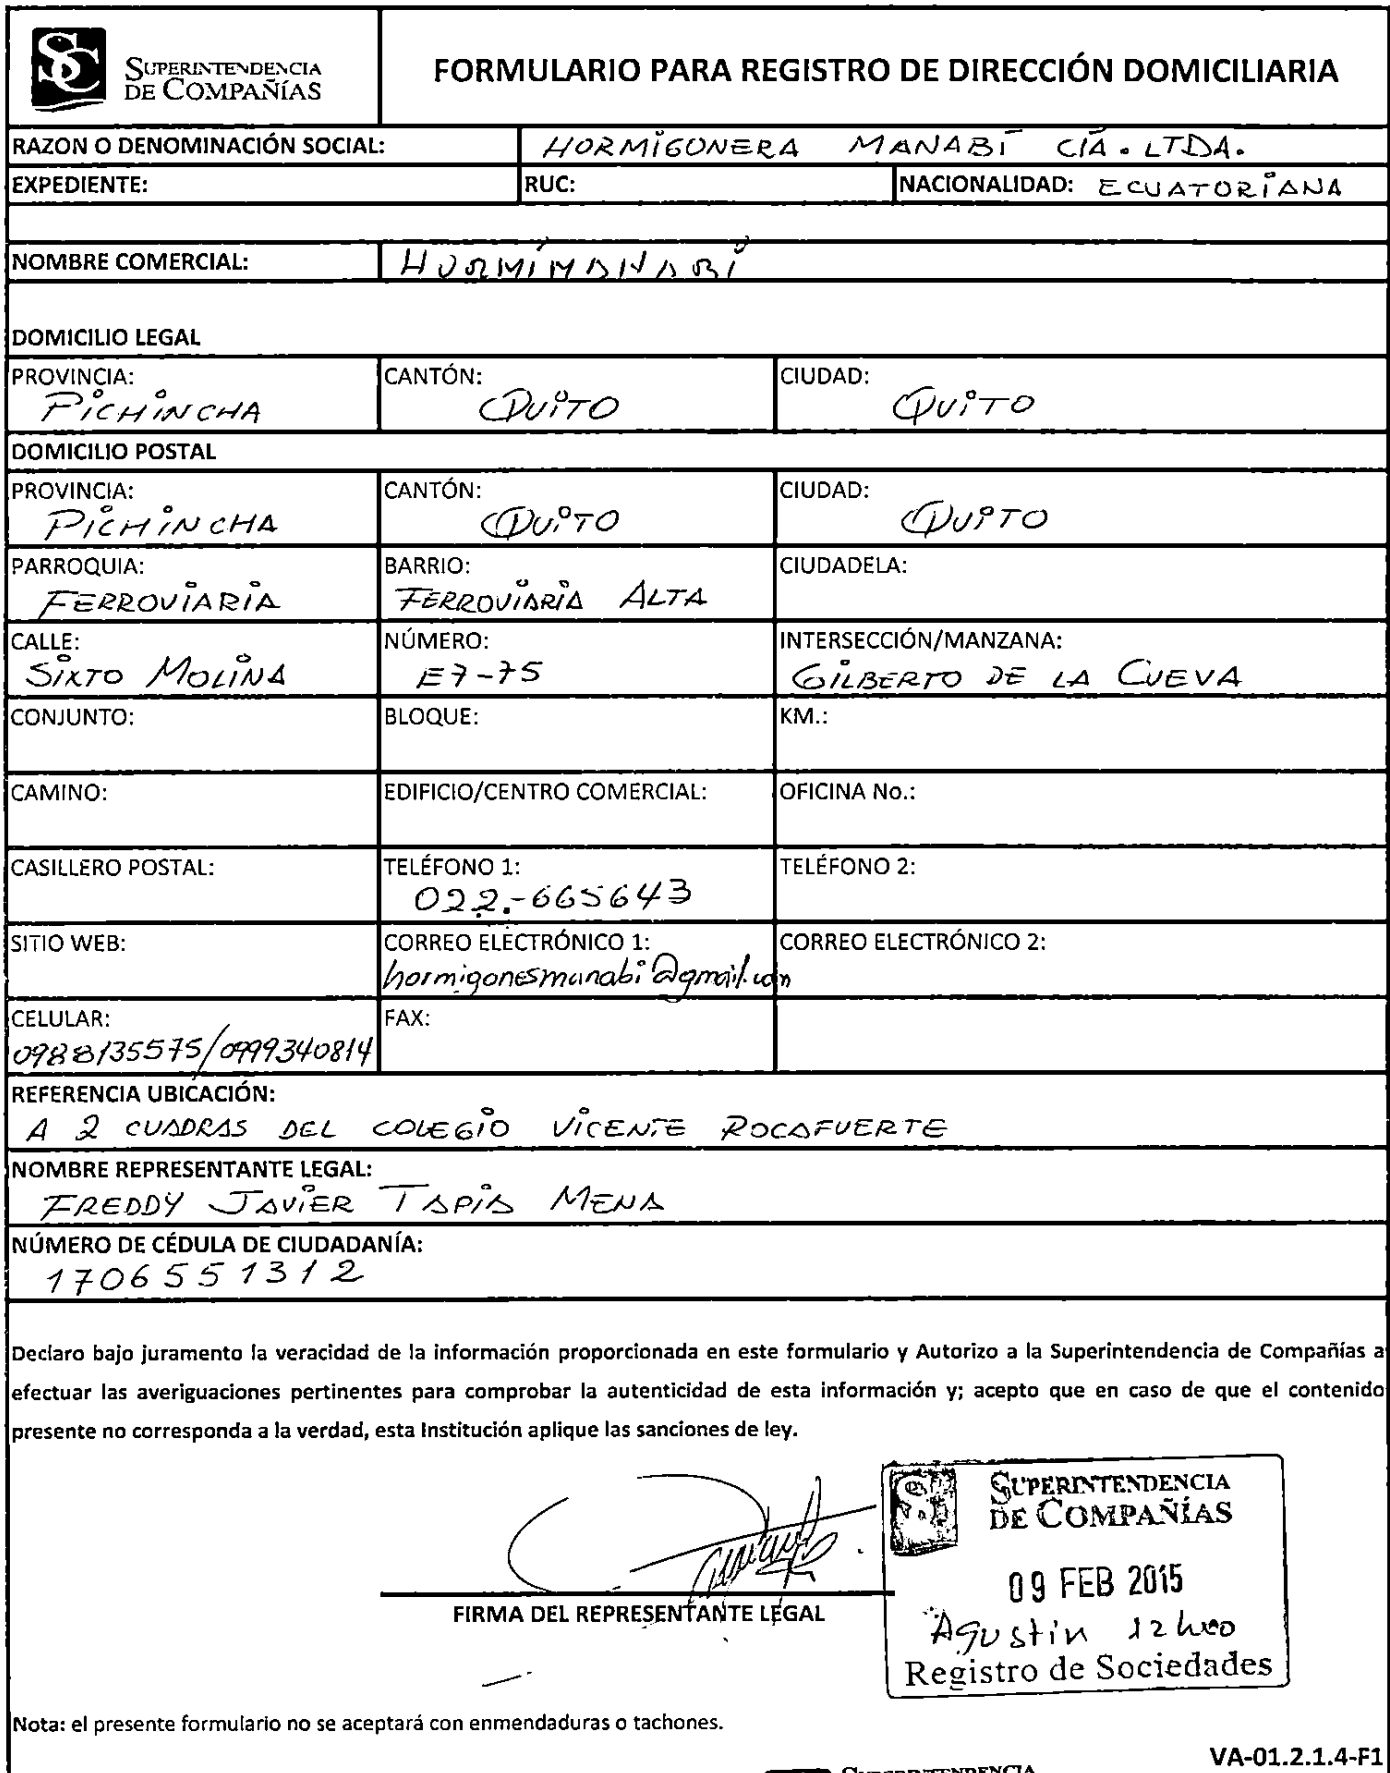 SUPERINTENDENCIA
DE COMPAÑÍAS
FORMULARIO PARA REGISTRO DE DIRECCIÓN DOMICILIARIA
RAZON O DENOMINACIÓN SOCIAL: HORMIGONERA MANABÍ CÍA. LTDA.
EXPEDIENTE: RUC: NACIONALIDAD: ECUATORIANA
NOMBRE COMERCIAL: HORMIMANABÍ
DOMICILIO LEGAL
PROVINCIA: CANTÓN: CIUDAD:
PICHINCHA QUITO QUITO
DOMICILIO POSTAL
PROVINCIA: CANTÓN: CIUDAD:
PICHINCHA QUITO QUITO
PARROQUIA: BARRIO: CIUDADELA:
FERROVIARIA FERROVIARIA ALTA
CALLE: NÚMERO: INTERSECCIÓN/MANZANA:
SIXTO MOLINA E7-75 GILBERTO DE LA CUEVA
CONJUNTO: BLOQUE: KM.:
CAMINO: EDIFICIO/CENTRO COMERCIAL: OFICINA No.:
CASILLERO POSTAL: TELÉFONO 1: TELÉFONO 2:
022-665643
SITIO WEB: CORREO ELECTRÓNICO 1: CORREO ELECTRÓNICO 2:
hormigonesmanabi@gmail.com
CELULAR: FAX:
0988135575/0999340814
REFERENCIA UBICACIÓN:
A 2 CUADRAS DEL COLEGIO VICENTE ROCAFUERTE
NOMBRE REPRESENTANTE LEGAL:
FREDDY JAVIER TAPIA MENA
NÚMERO DE CÉDULA DE CIUDADANÍA:
1706551312
Declaro bajo juramento la veracidad de la información proporcionada en este formulario y Autorizo a la Superintendencia de Compañías a
efectuar las averiguaciones pertinentes para comprobar la autenticidad de esta información y; acepto que en caso de que el contenido
presente no corresponda a la verdad, esta Institución aplique las sanciones de ley.
SUPERINTENDENCIA
DE COMPAÑÍAS
09 FEB 2015
Agustin 12h00
Registro de Sociedades
FIRMA DEL REPRESENTANTE LEGAL
Nota: el presente formulario no se aceptará con enmendaduras o tachones.
VA-01.2.1.4-F1
SUPERINTENDENCIA